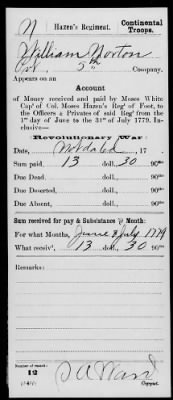 N Hazen's Regiment. Continental Troops.
William Norton
Pvt. 5th Company.
Appears on an
Account
of Money received and paid by Moses White
Capt of Col. Moses Hazen's Regt of Foot, to
the Officers & Privates of said Regt from the
1st day of June to the 31st of July 1779. In-
clusive—
Revolutionary War:
Date, Not dated, 17
Sum paid, 13 doll. 30 90ths
Due Dead, doll. 90ths
Due Deserted, doll. 90ths
Due Absent, doll. 90ths
Sum received for pay & Subsistance ⅌ Month:
For what Months, June & July 1779
What receivd, 13 doll. 30 90ths
Remarks:
Number of record:
12
Copyist.